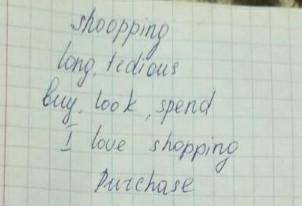 shoopping
long, tedious
buy, look, spend
I love shopping
Purchase